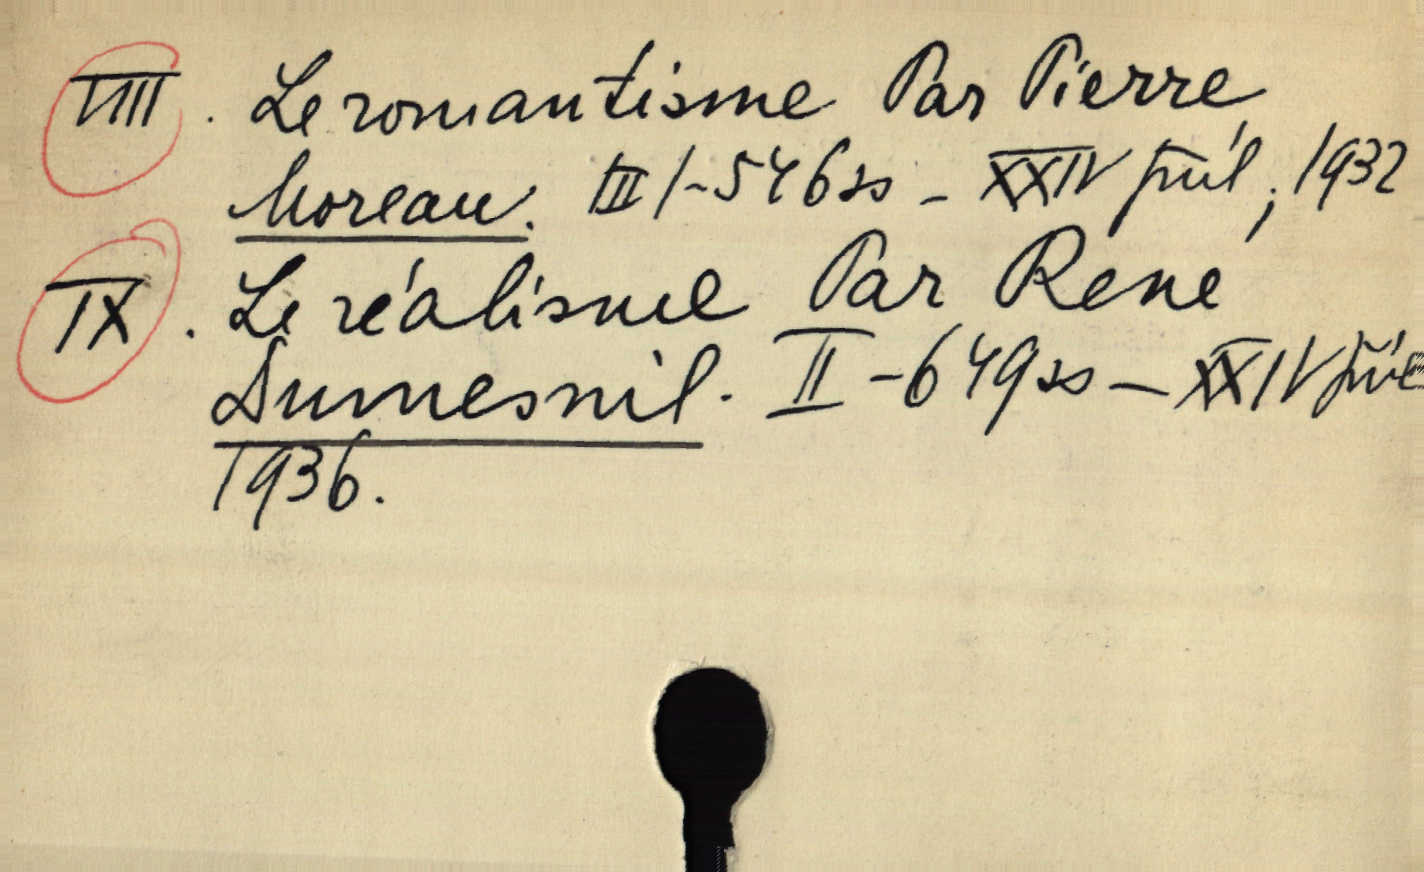 VIII. Le romantisme Par Pierre
Moreau. III/-546 ss - XXIV pml; 1932
IX. Le réalisme Par René
Dumesnil. II - 649 ss - XXIV
1936.